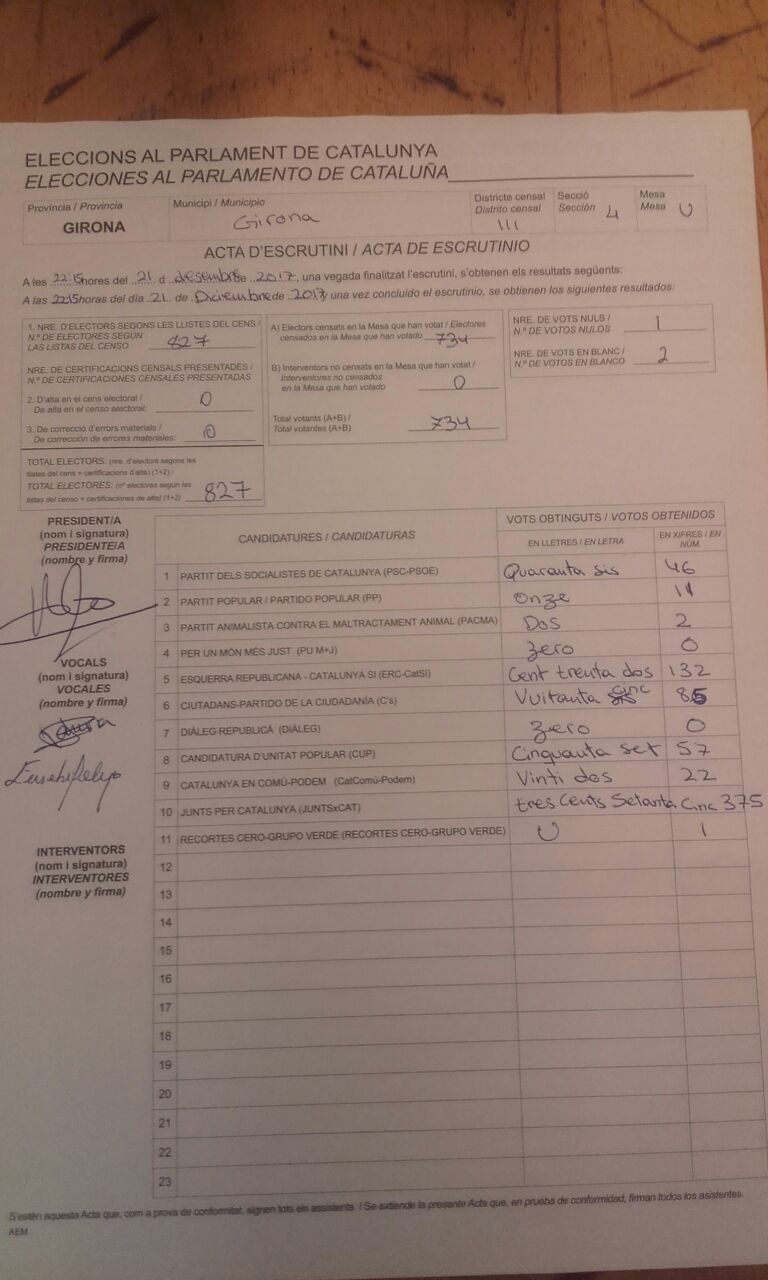 ELECCIONS AL PARLAMENT DE CATALUNYA
ELECCIONES AL PARLAMENTO DE CATALUÑA
Província / Provincia
GIRONA
Municipi / Municipio
Girona
Districte censal
Distrito censal
III
Secció
Sección 4
Mesa
Mesa U
ACTA D'ESCRUTINI / ACTA DE ESCRUTINIO
A les 22:15 hores del 21 d desembre de 2017, una vegada finalitzat l'escrutini, s'obtenen els resultats següents:
A las 22:15 horas del día 21 de Diciembre de 2017 una vez concluido el escrutinio, se obtienen los siguientes resultados:
1. NRE. D'ELECTORS SEGONS LES LLISTES DEL CENS /
N.º DE ELECTORES SEGÚN
LAS LISTAS DEL CENSO 827
NRE. DE CERTIFICACIONS CENSALS PRESENTADES /
N.º DE CERTIFICACIONES CENSALES PRESENTADAS
2. D'alta en el cens electoral /
De alta en el censo electoral: 0
3. De correcció d'errors materials /
De corrección de errores materiales: 0
TOTAL ELECTORS: (nre. d'electors segons les
llistes del cens + certificacions d'alta) (1+2) /
TOTAL ELECTORES: (nº electores según las
listas del censo + certificaciones de alta) (1+2) 827
A) Electors censats en la Mesa que han votat / Electores
censados en la Mesa que han votado 734
B) Interventors no censats en la Mesa que han votat /
Interventores no censados
en la Mesa que han votado 0
Total votants (A+B) /
Total votantes (A+B) 734
NRE. DE VOTS NULS /
N.º DE VOTOS NULOS 1
NRE. DE VOTS EN BLANC /
N.º DE VOTOS EN BLANCO 2
PRESIDENT/A
(nom i signatura)
PRESIDENTE/A
(nombre y firma)
VOCALS
(nom i signatura)
VOCALES
(nombre y firma)
INTERVENTORS
(nom i signatura)
INTERVENTORES
(nombre y firma)
CANDIDATURES / CANDIDATURAS
VOTS OBTINGUTS / VOTOS OBTENIDOS
EN LLETRES / EN LETRA
EN XIFRES / EN NÚM.
1 PARTIT DELS SOCIALISTES DE CATALUNYA (PSC-PSOE) Quaranta sis 46
2 PARTIT POPULAR / PARTIDO POPULAR (PP) Onze 11
3 PARTIT ANIMALISTA CONTRA EL MALTRACTAMENT ANIMAL (PACMA) Dos 2
4 PER UN MÓN MÉS JUST (PU M+J) Zero 0
5 ESQUERRA REPUBLICANA - CATALUNYA SI (ERC-CatSí) Cent trenta dos 132
6 CIUTADANS-PARTIDO DE LA CIUDADANÍA (C's) Vuitanta cinc 85
7 DIÀLEG REPUBLICÀ (DIÀLEG) Zero 0
8 CANDIDATURA D'UNITAT POPULAR (CUP) Cinquanta set 57
9 CATALUNYA EN COMÚ-PODEM (CatComú-Podem) Vinti dos 22
10 JUNTS PER CATALUNYA (JUNTSxCAT) tres cents Setanta Cinc 375
11 RECORTES CERO-GRUPO VERDE (RECORTES CERO-GRUPO VERDE) U 1
12
13
14
15
16
17
18
19
20
21
22
23
S'estén aquesta Acta que, com a prova de conformitat, signen tots els assistents. / Se extiende la presente Acta que, en prueba de conformidad, firman todos los asistentes.
AEM